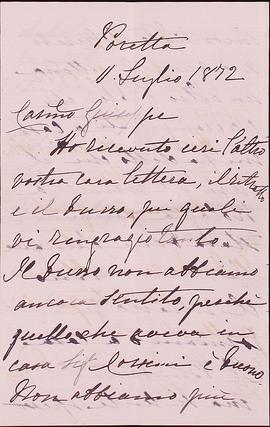 Poretta
11 Luglio 1872
Carmo Giuseppe
Ho ricevuto ieri l'altro
vostra cara lettera, il ritratto
e il Duvvo, pei quali
vi ringrazio tanto.
Il Duvvo non abbiamo
ancora sentito, perché
quello che aveva in
casa Sigr è buono.
Non abbiamo più